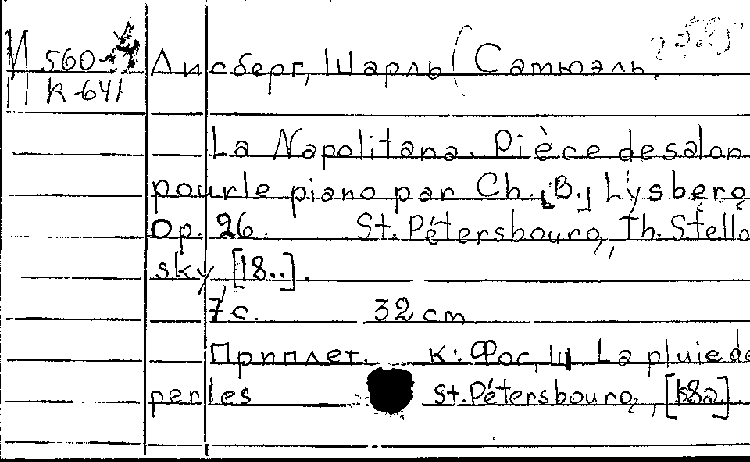 И 560-4 Лисберг, Шарль (Самюэль.
К-641
La Napolitana. Pièce de salon
pour le piano par Ch. [B.] Lysberg
Op. 26. St. Pétersbourg, Th. Stello
sky, [18..].
7 с. 32 cm
Приплет. к: Фос, Ш La pluie de
perles St. Pétersbourg, [18..].